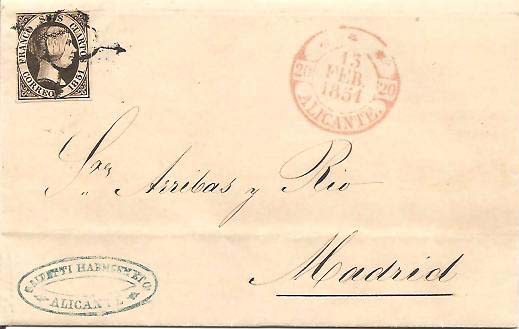 FRANCO SEIS CUARTOS
CORREOS 1851
13
FEB
1851
20 20
ALICANTE.
Sres Arribas y Rio
Madrid
ALICANTE